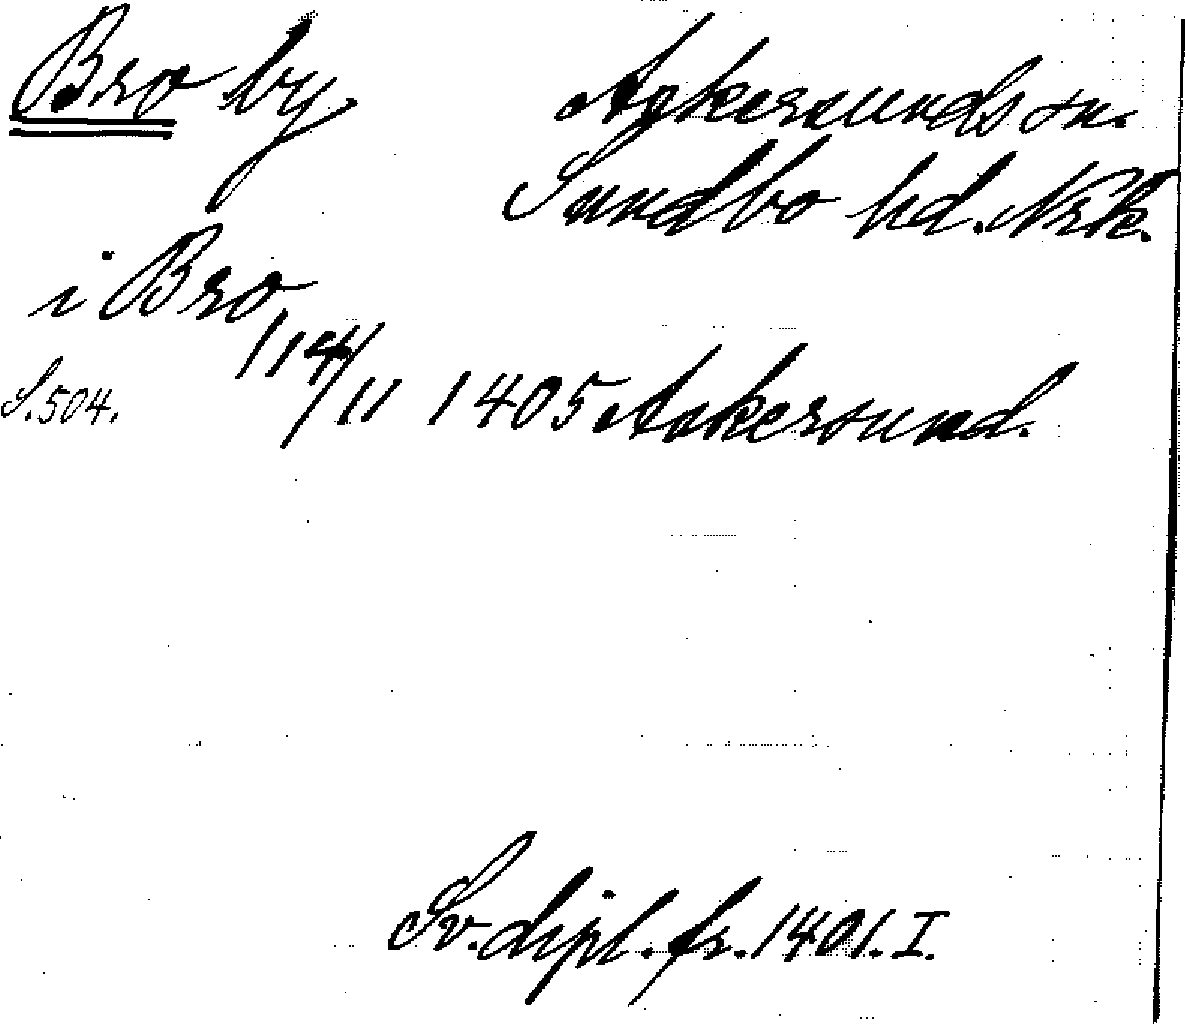 Bro by Askersunds sn.
Sundbo hd. Nrk.
i Bro
S. 504. 14/11 1405 Askersund.
Sv. dipl. fr. 1401. I.